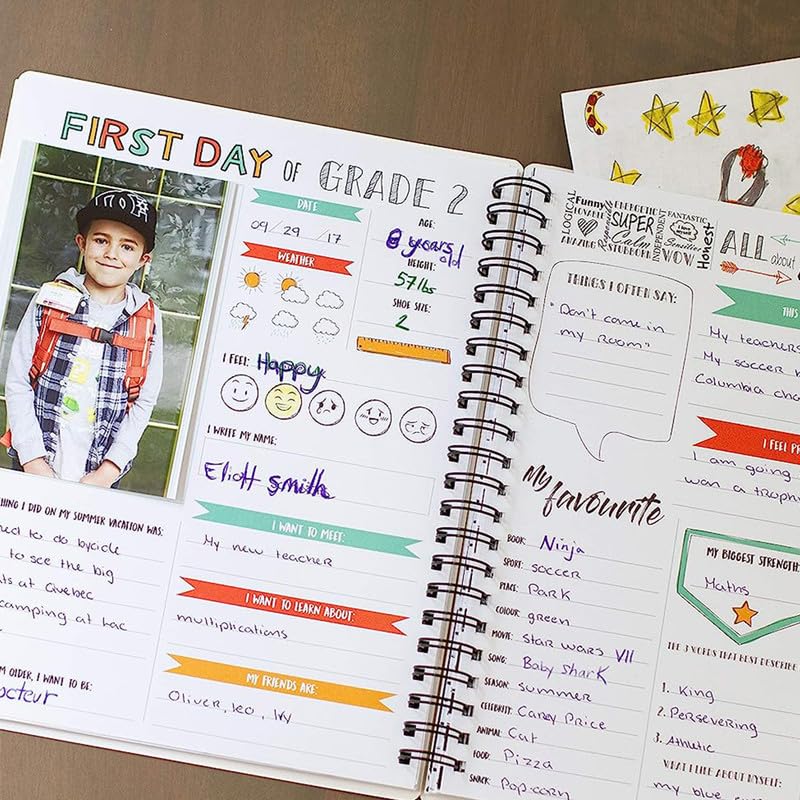 FIRST DAY OF GRADE 2
DATE
09/29/17
WEATHER
AGE:
8 years old
HEIGHT:
57lbs
SHOE SIZE:
2
I FEEL: Happy
I WRITE MY NAME:
Eliott Smith
THING I DID ON MY SUMMER VACATION WAS:
to do bycicle
to see the big
at Quebec
camping at Lac
OLDER, I WANT TO BE:
octeur
I WANT TO MEET:
My new teacher
I WANT TO LEARN ABOUT:
multiplications
MY FRIENDS ARE:
Oliver, Leo, Ivy
LOGICAL
Funny
LOVABLE
AMAZING
Responsible
ENERGETIC
SUPER
Calm
STUBBORN
INDEPENDENT
FANTASTIC
Sensitive
WOW
Honest
ALL about
THINGS I OFTEN SAY:
"Don't come in
my room"
THIS
My teachers
My soccer
Columbia
I FEEL
I am going
won a trophy
My favourite
BOOK: Ninja
SPORT: soccer
PLACE: Park
COLOUR: green
MOVIE: Star Wars VII
SONG: Baby Shark
SEASON: summer
CELEBRITY: Carey Price
ANIMAL: Cat
FOOD: Pizza
SNACK: Pop corn
MY BIGGEST STRENGTH:
Maths
THE 3 WORDS THAT BEST DESCRIBE
1. King
2. Persevering
3. Athletic
WHAT I LIKE ABOUT MYSELF:
my blue